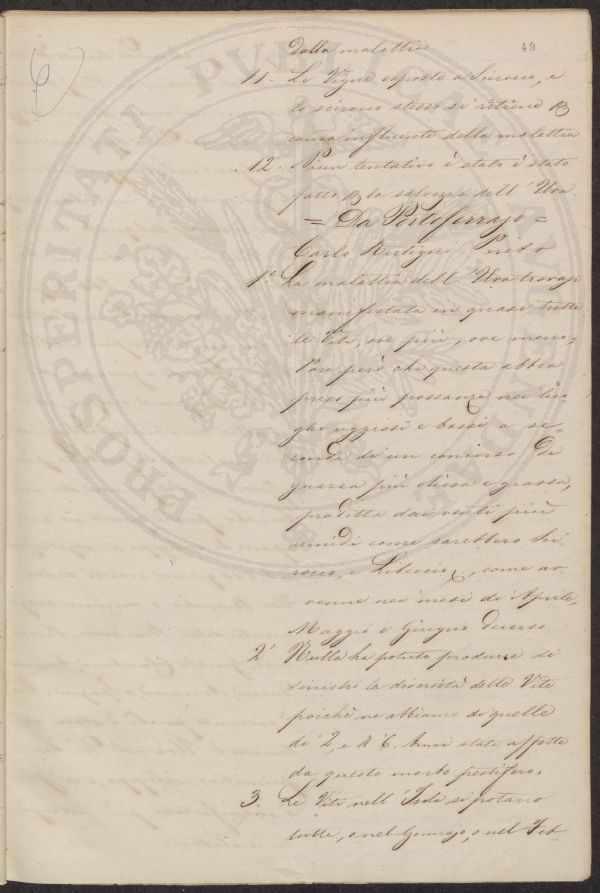 49
dalla malattia
11. Le Vigne esposte a Scirocco, e
lo scirocco stesso si ritiene p
causa influente della malattia
12. Niun tentativo è stato è stato
fatto p la salvezza dell'Uva
= Da Portoferrajo =
Carlo Perito
1° La malattia dell'Uva trovasi
manifestata in quasi tutte
le Viti, ove più, ove meno,
Pare però che questa abbia
preso più possanza nei luo-
ghi uggiosi e bassi a se-
conda di un concorso di
guazza più oliosa e grassa,
prodotta dai venti più
umidi come sarebbero Sci-
rocco, e Libeccio, come av-
venne nei mesi di Aprile,
Maggio e Giugno decorso
2° Nulla ha potuto produrre di
sinistro la diversità delle Vite
poichè ne abbiamo di quelle
di 2, e di 6 Anni state affette
da questo morbo pestifero.
3. Le Viti nell'Isola si potano
tutte, o nel Gennajo, o nel Feb
PROSPERITATI PUBLICAE AUGENDAE